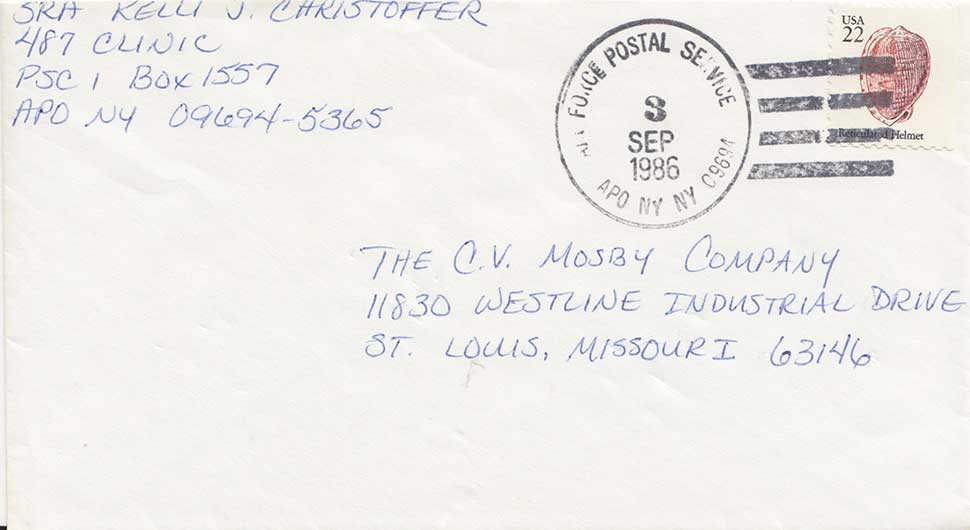 SRA KELLI J. CHRISTOFFER
487 CLINIC
PSC 1 BOX 1557
APO NY 09694-5365
AIR FORCE POSTAL SERVICE
3
SEP
1986
APO NY NY 09694
USA
22
Reticulated Helmet
THE C.V. MOSBY COMPANY
11830 WESTLINE INDUSTRIAL DRIVE
ST. LOUIS, MISSOURI 63146